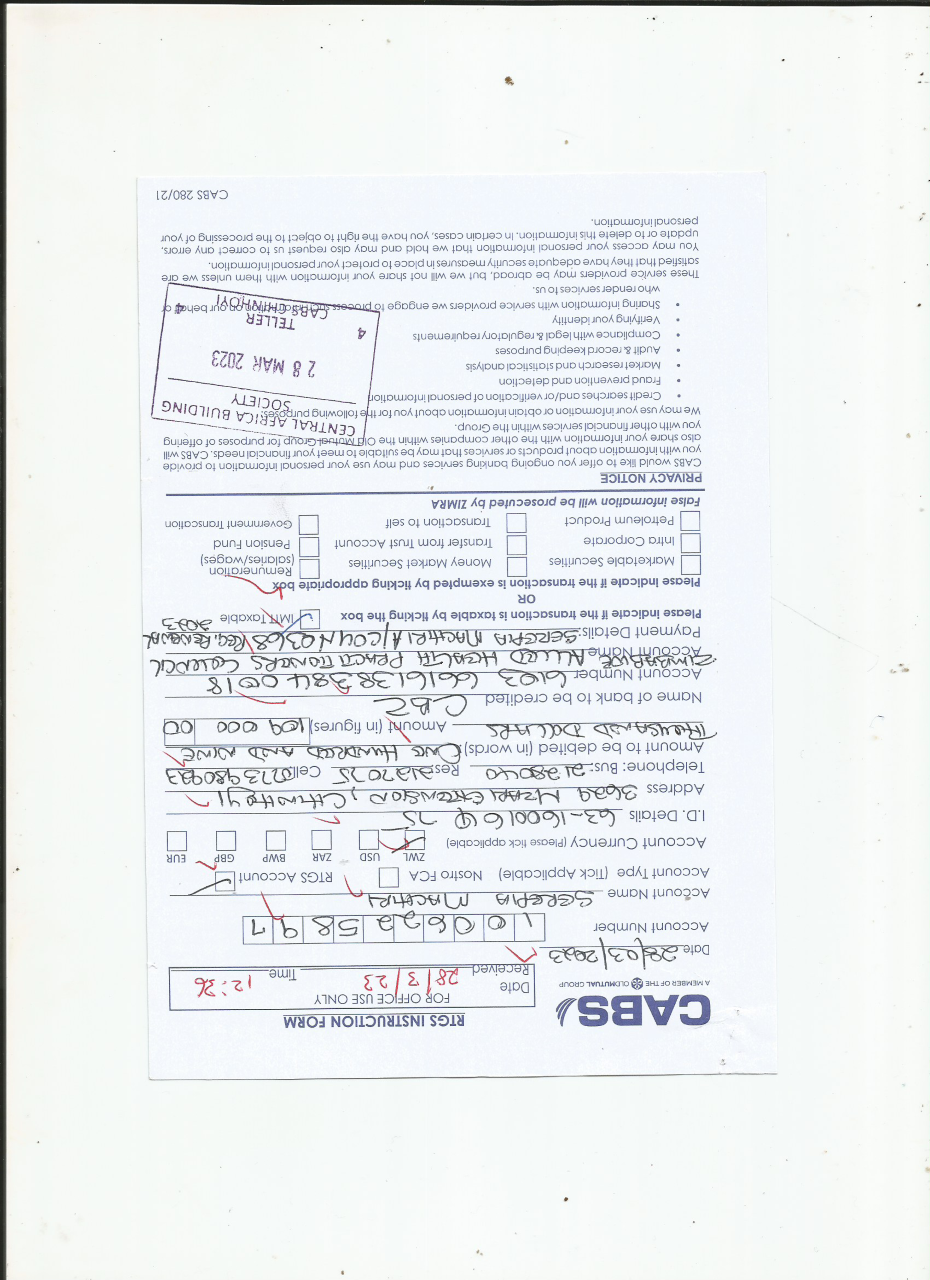 CABS
A MEMBER OF THE OLDMUTUAL GROUP
RTGS INSTRUCTION FORM
FOR OFFICE USE ONLY
Date Received 28/3/23 Time 12:36
Date 28/03/2023
Account Number 1006225897
Account Name SEREPIA MACHIRI
Account Type (Tick Applicable) Nostro FCA RTGS Account
Account Currency (Please tick applicable) ZWL USD ZAR BWP GBP EUR
I.D. Details 63-1600164 75
Address 3629 MZARI EXTENSION, CHINHOYI
Telephone: Bus: 2128040 Res: 2127025 Cell 0773980923
Amount to be debited (in words) ONE HUNDRED AND NINE
THOUSAND DOLLARS Amount (in figures) 109 000 00
Name of bank to be credited CBZ
Account Number 6103 6616138384 0018
Account Name ZIMBABWE ALLIED HEALTH PRACTITIONERS COUNCIL
Payment Details: SEREPIA MACHIRI/COUN0368 REG. RENEWAL
2023
Please indicate if the transaction is taxable by ticking the box IMT Taxable
OR
Please indicate if the transaction is exempted by ticking appropriate box
Marketable Securities Money Market Securities Remuneration (salaries/wages)
Intra Corporate Transfer from Trust Account Pension Fund
Petroleum Product Transaction to self Government Transcation
False information will be prosecuted by ZIMRA
PRIVACY NOTICE
CABS would like to offer you ongoing banking services and may use your personal information to provide
you with information about products or services that may be suitable to meet your financial needs. CABS will
also share your information with the other companies within the Old Mutual Group for purposes of offering
you with other financial services within the Group.
We may use your information or obtain information about you for the following purposes:
• Credit searches and/or verification of personal information
• Fraud prevention and detection
• Market research and statistical analysis
• Audit & record keeping purposes
• Compliance with legal & regulatory requirements
• Verifying your identity
• Sharing information with service providers we engage to process such information on our behalf or
who render services to us.
These service providers may be abroad, but we will not share your information with them unless we are
satisfied that they have adequate security measures in place to protect your personal information.
You may access your personal information that we hold and may also request us to correct any errors,
update or to delete this information. In certain cases, you have the right to object to the processing of your
personal information.
CENTRAL AFRICA BUILDING
SOCIETY
28 MAR 2023
4 TELLER 4
CABS CHINHOYI
CABS 280/21